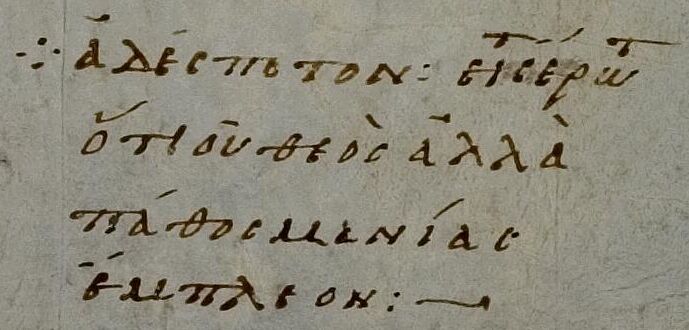 ⁘ ἀδέσποτον: εἰς ἔρωτ
ὅτι οὐ θεὸς ἀλλὰ
πάθος μανίας
ἔμπλεον: